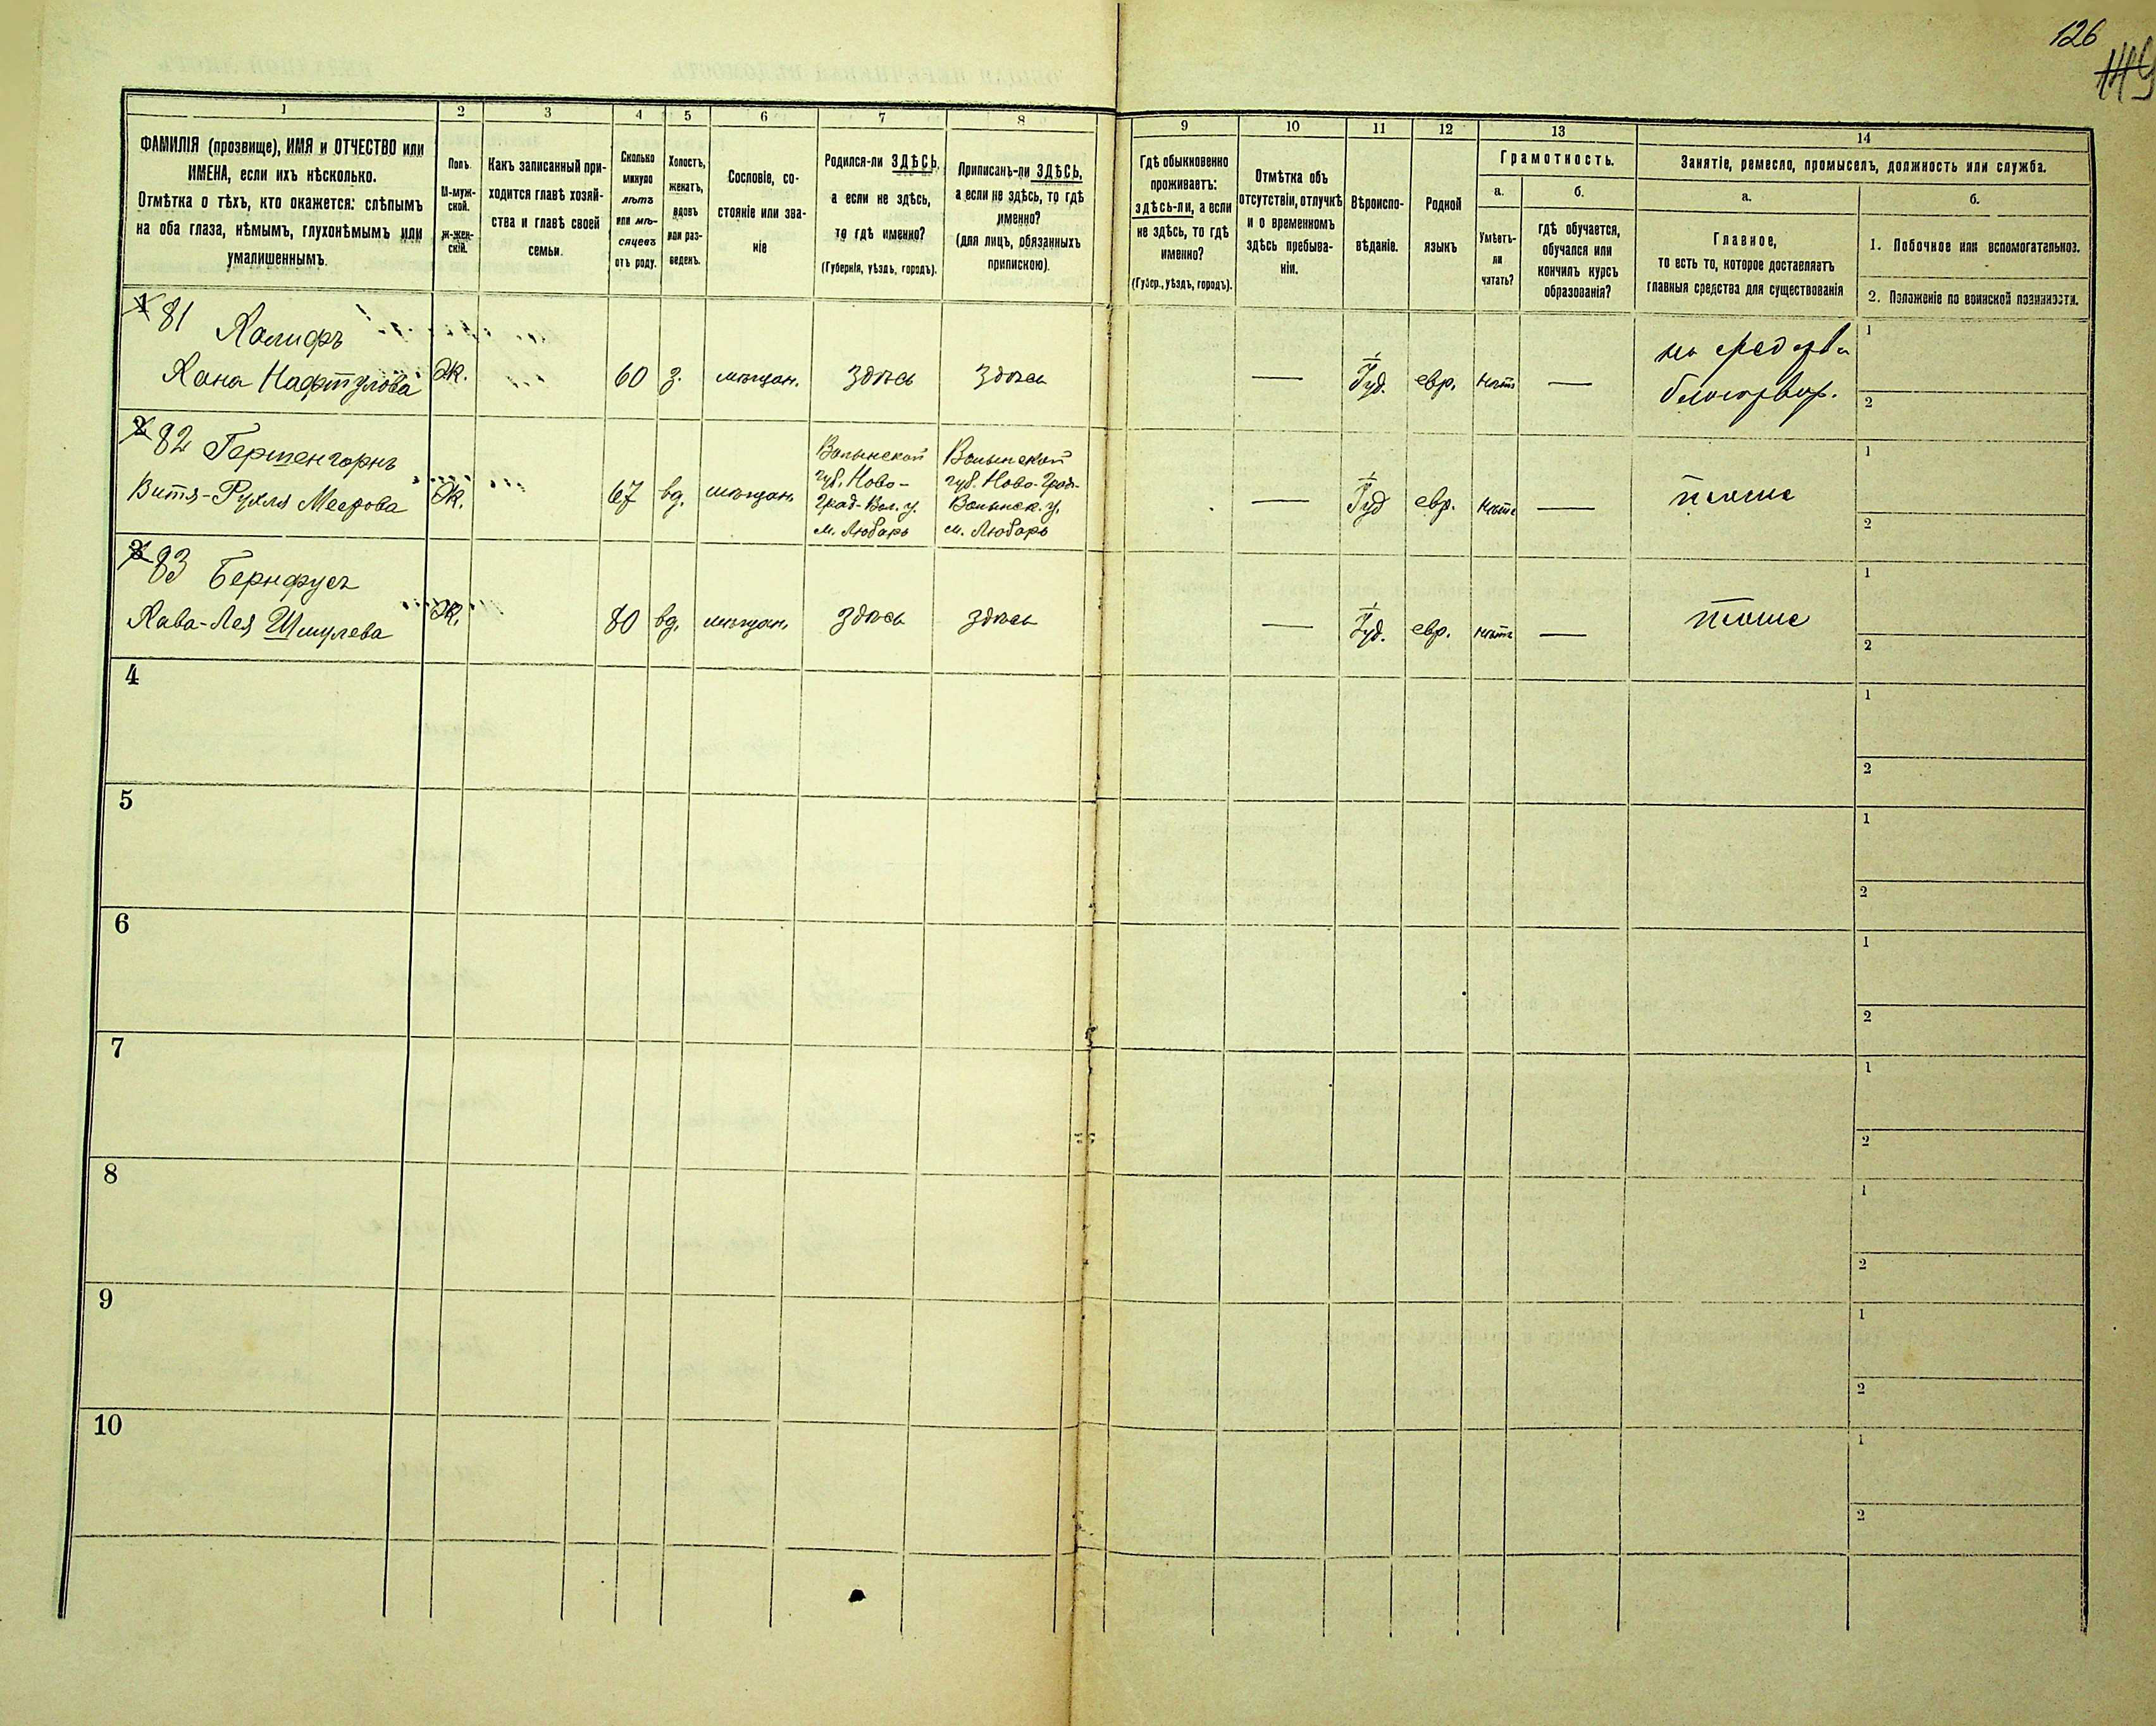 126
119
1
2
3
4
5
6
7
8
9
10
11
12
13
14
ФАМИЛІЯ (прозвище), ИМЯ и ОТЧЕСТВО или
ИМЕНА, если ихъ нѣсколько.
Отмѣтка о тѣхъ, кто окажется: слѣпымъ
на оба глаза, нѣмымъ, глухонѣмымъ или
умалишеннымъ.
Полъ.
М-муж-
ской.
Ж-жен-
скій.
Какъ записанный при-
ходится главѣ хозяй-
ства и главѣ своей
семьи.
Сколько
минуло
лѣтъ
или мѣ-
сяцевъ
отъ роду.
Холостъ,
женатъ,
вдовъ
или раз-
веденъ.
Сословіе, со-
стояніе или зва-
ніе
Родился-ли ЗДѢСЬ,
а если не здѣсь,
то гдѣ именно?
(Губернія, уѣздъ, городъ).
Приписанъ-ли ЗДѢСЬ,
а если не здѣсь, то гдѣ
именно?
(для лицъ, обязанныхъ
припискою).
Гдѣ обыкновенно
проживаетъ:
здѣсь-ли, а если
не здѣсь, то гдѣ
именно?
(Губер., уѣздъ, городъ).
Отмѣтка объ
отсутствіи, отлучкѣ
и о временномъ
здѣсь пребыва-
ніи.
Вѣроиспо-
вѣданіе.
Родной
языкъ
Грамотность.
а.
Умѣетъ-
ли
читать?
б.
гдѣ обучается,
обучался или
кончилъ курсъ
образованія?
Занятіе, ремесло, промыселъ, должность или служба.
а.
Главное,
то есть то, которое доставляетъ
главныя средства для существованія
б.
1. Побочное или вспомогательное.
2. Положеніе по воинской повинности.
1 81 Халифъ
Хана Нафтулова
Ж.
60
з.
мѣщан.
здѣсь
здѣсь
—
Іуд.
евр.
нѣтъ
—
на средства
благотвор.
1
2
2 82 Гершенгорнъ
Витя-Рухля Меерова
Ж.
67
вд.
мѣщан.
Волынской
губ. Ново-
Град-Вол. у.
м. Любаръ
Волынской
губ. Ново-Град-
Волынск. у.
м. Любаръ
—
Іуд
евр.
нѣтъ
—
тоже
1
2
3 83 Бернфусъ
Хава-Лея Шмулева
Ж.
80
вд.
мѣщан.
здѣсь
здѣсь
—
Іуд.
евр.
нѣтъ
—
тоже
1
2
4
1
2
5
1
2
6
1
2
7
1
2
8
1
2
9
1
2
10
1
2